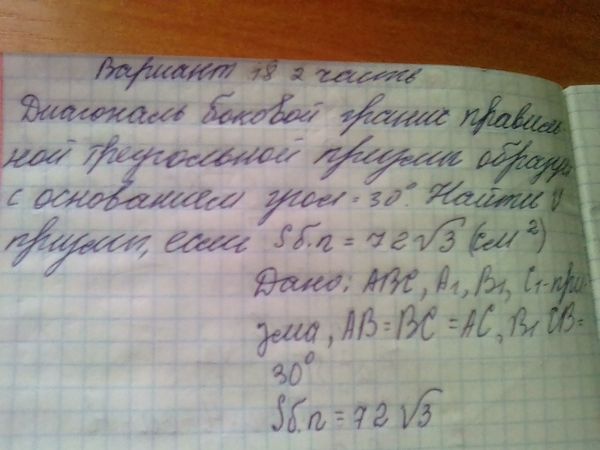 Вариант 18 2 часть
Диагональ боковой грани правиль-
ной треугольной призмы образует
с основанием угол = 30°. Найти V
призмы, если Sб.п = 72√3 (см²)
Дано: ABC, A₁, B₁, C₁ - при-
зма, AB = BC = AC, B₁CB =
30°
Sб.п = 72√3